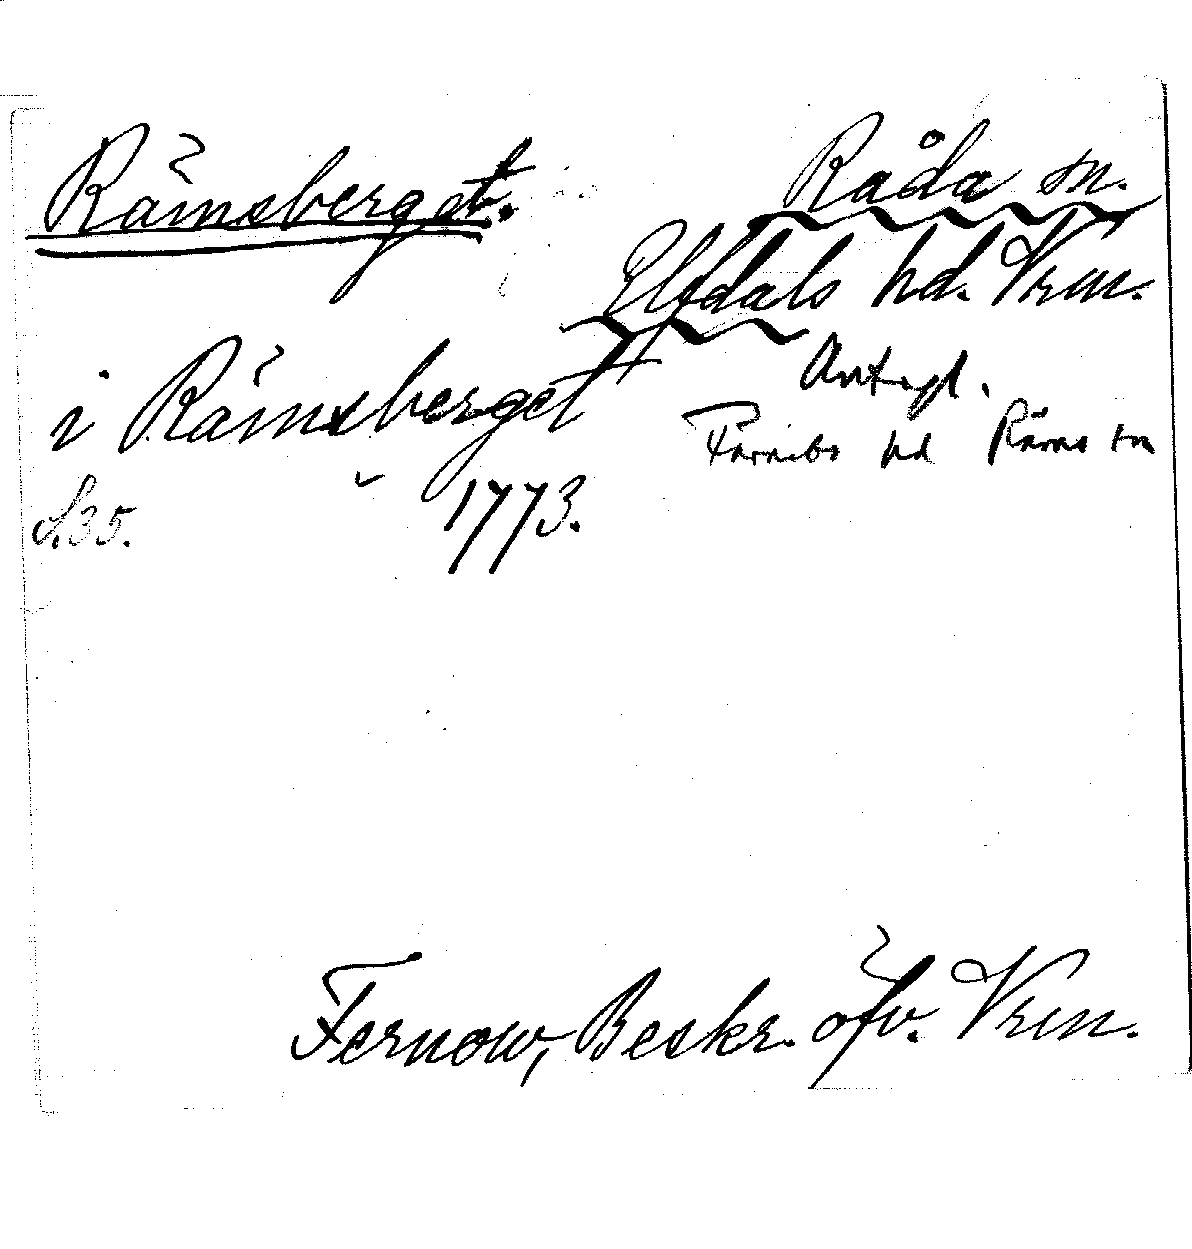 Rämsberget.
Råda sn.
Elfdals hd. Vrm.
Antagl.
Färnebo hd Räms sn
i Rämsberget
S. 35. 1773.
Fernow, Beskr. öfv. Vrm.